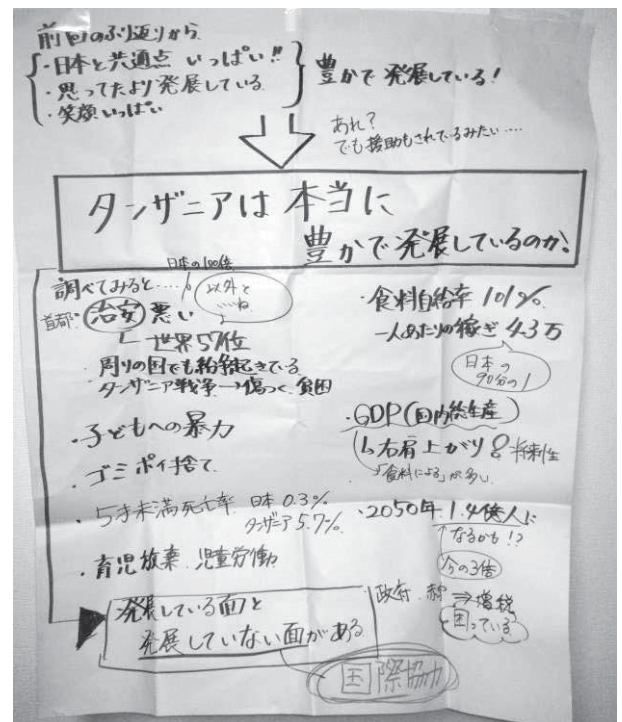 前回のふり返りから
・日本と共通点 いっぱい!!
・思ってたより発展している
・笑顔いっぱい
豊かで発展している!
あれ?
でも援助もされているみたい....
タンザニアは 本当に
豊かで発展しているのか?
調べてみると....
日本の100倍
首都:治安 悪い
以外といいね
世界57位
・周りの国でも紛争起きている
タンザニア戦争→傷つく、貧困
・子どもへの暴力
・ゴミポイ捨て
・5才未満死亡率 日本 0.3%
タンザニア 5.7%
・育児放棄、児童労働
・食料自給率 101%
一人あたりの稼ぎ 4.3万
日本の
90分の1
・GDP(国内総生産)
右肩上がり 将来性
「食料による」が多い
・2050年 1.4億人に
なるかも!?
今の3倍
政府 赤字 ⇒増税
困っている
発展している面と
発展していない面がある
国際協力